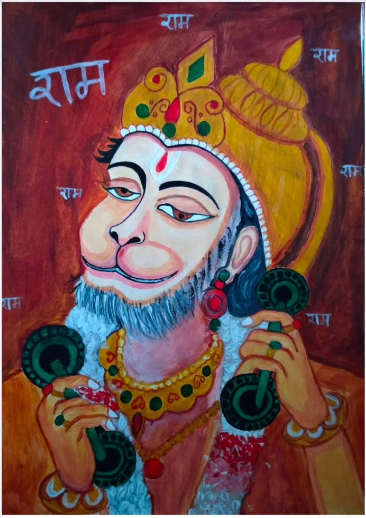 राम
राम
राम
राम
राम
राम
राम